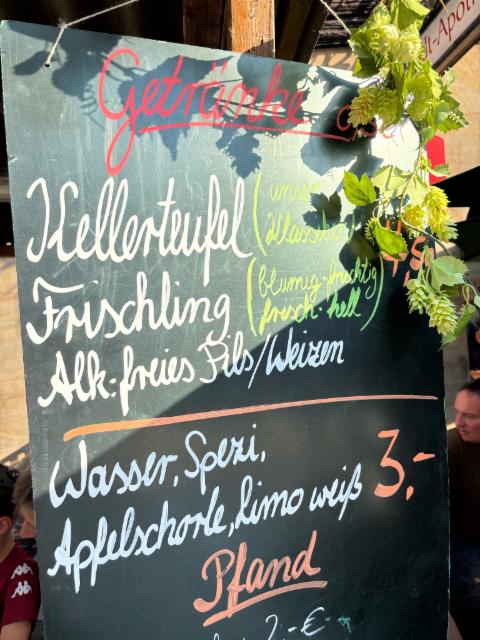 Getränke
Kellerteufel (unser
Frischling (blumig-fruchtig
frisch-hell)
Alk-freies Pils/Weizen
Wasser, Spezi,
Apfelschorle, Limo weiß 3,-
Pfand
2,-€